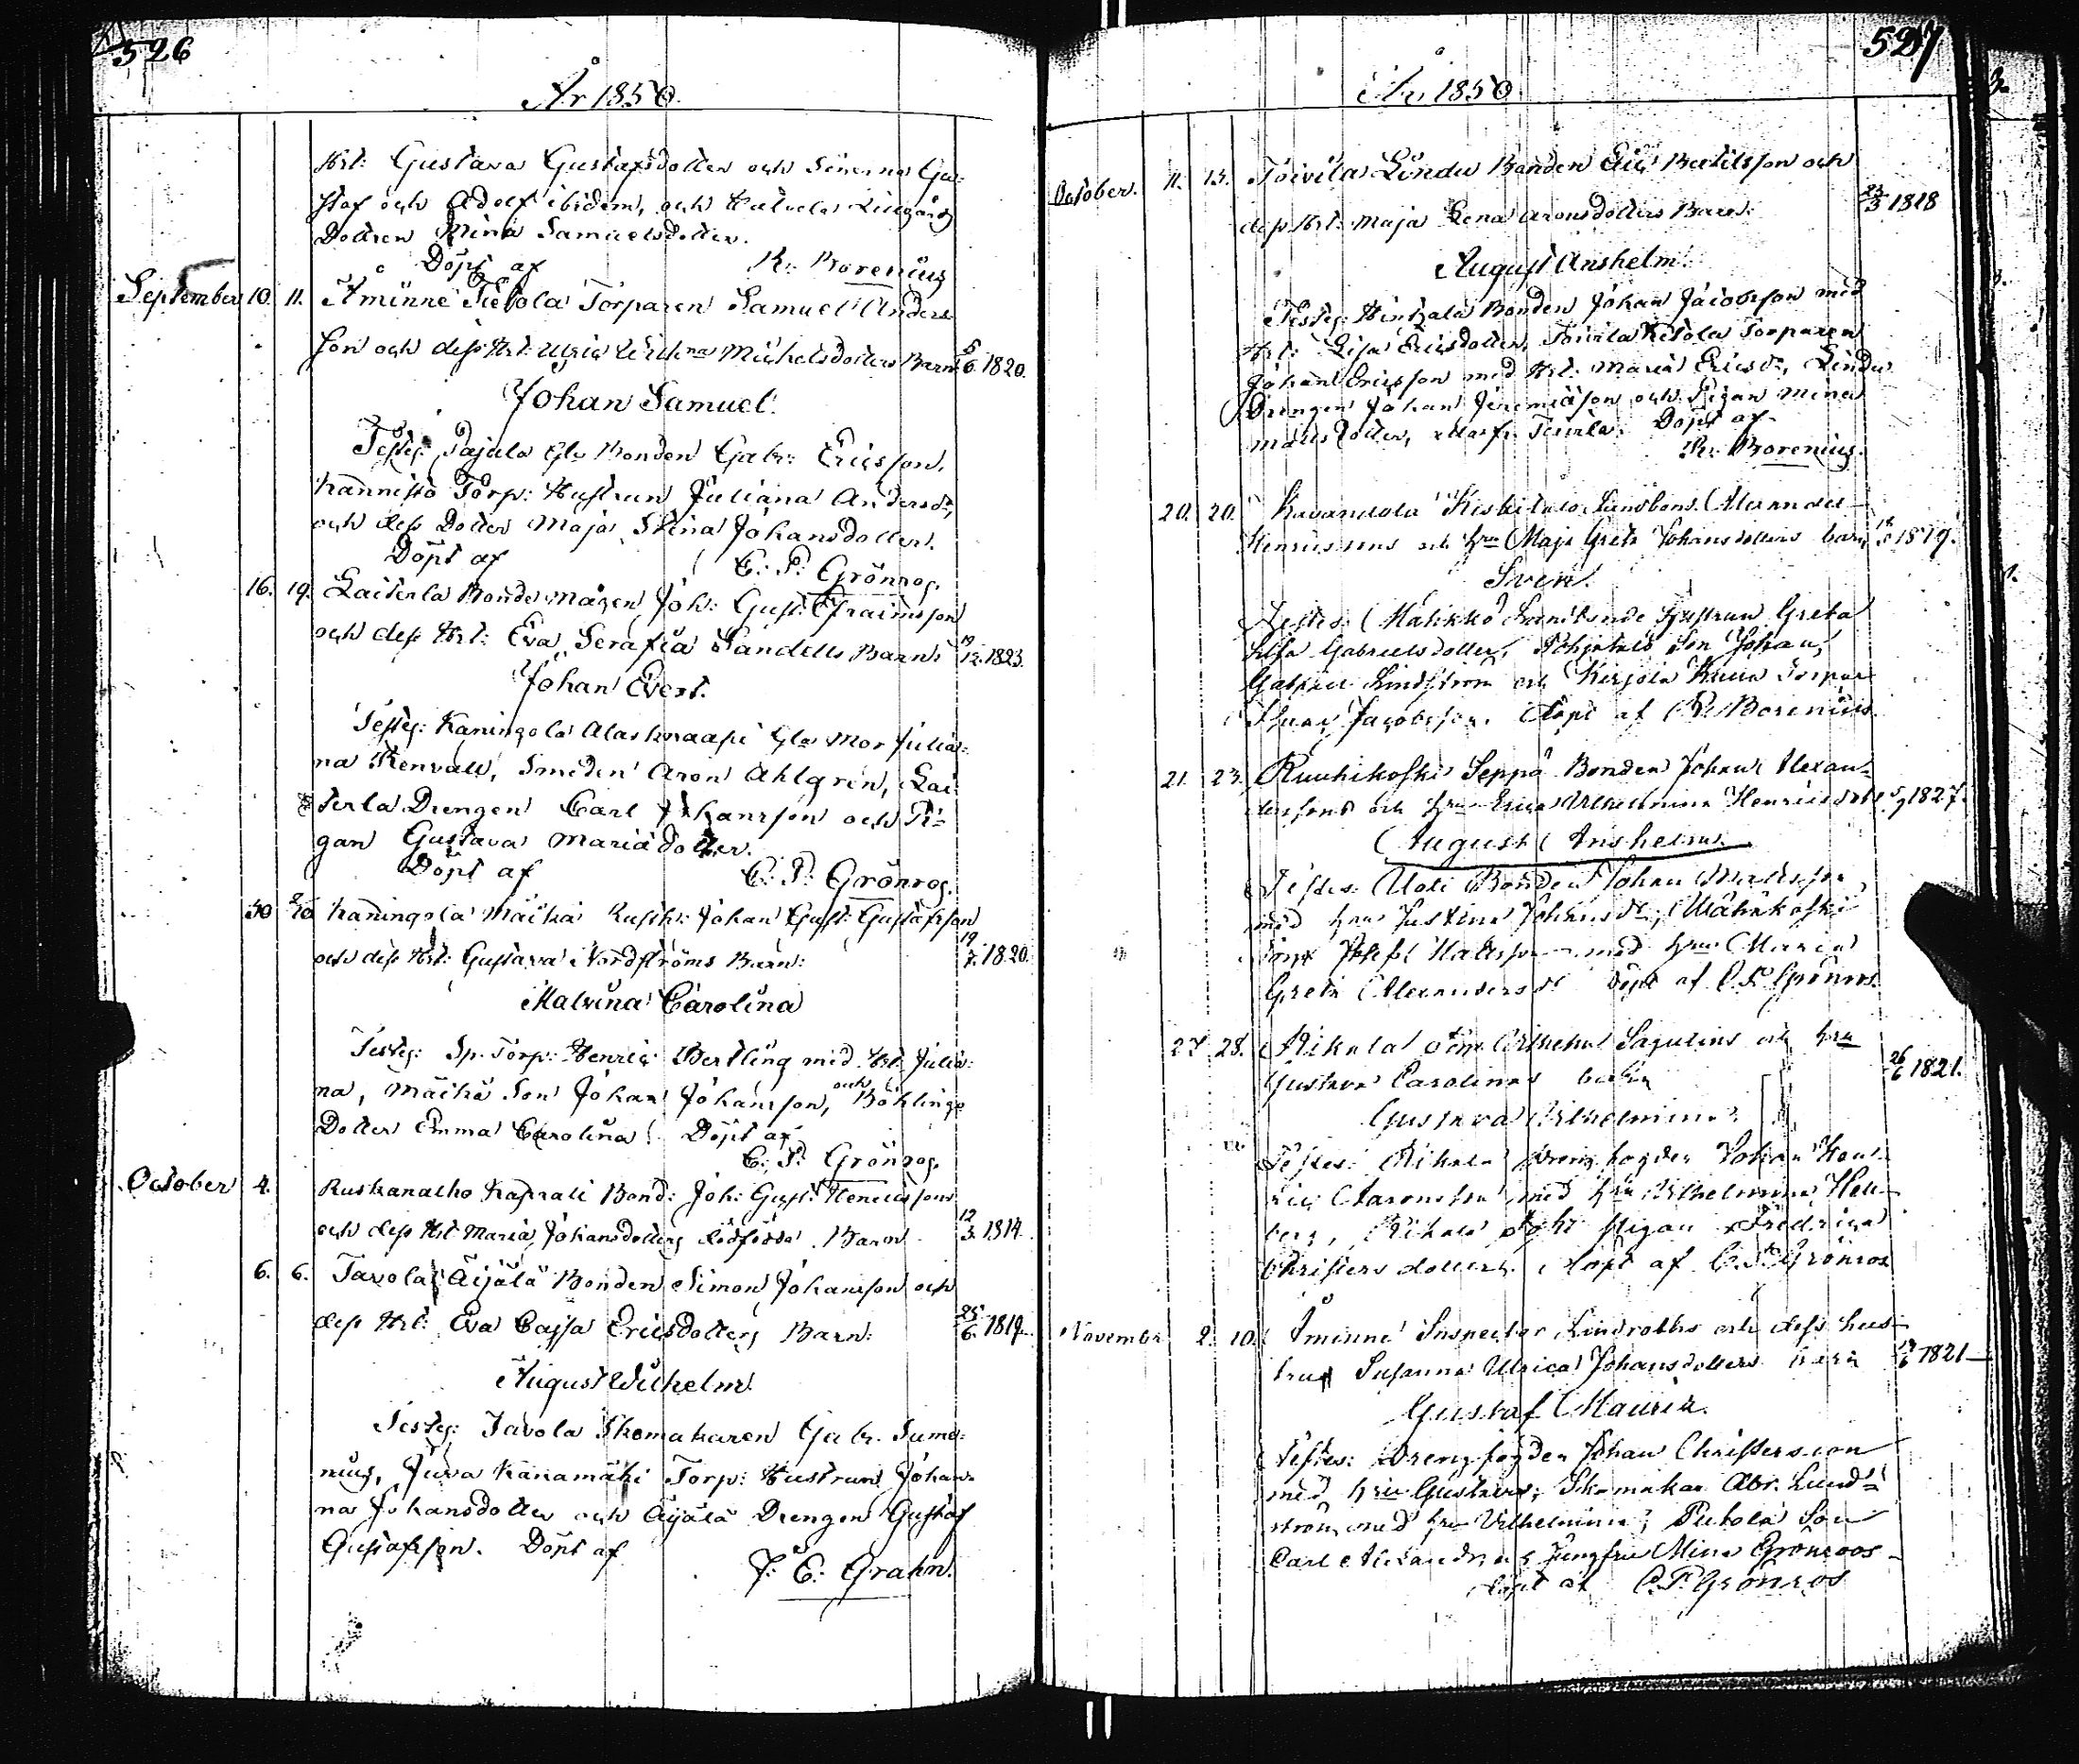 526
År 1850.
Hst: Gustava Gustafsdotter och Sönerna Gu-
staf och Adolf ibidem, och
Dottren Mina Samuelsdotter.
Döpt af R: Borenius
September 10. 11. Åminne Tietola Torparen Samuel Anders
son och dess Hst: Ulrica Michelsdotters Barn: 5/6. 1820.
Johan Samuel.
Testes: Pajula Gl: Bonden Gabr: Ericsson,
Kannisto Torp: Hustrun Juliana Andersdr,
och dess Dotter Maja Stina Johansdotter.
Döpt af C: F: Grönros.
16. 19. Laiterla Bonde mågen Joh: Gust: Efraimsson
och dess Hst: Eva Serafia Sandells Barn: 19/12. 1823.
Johan Evert.
Testes: Kaningola Alasknaapi Gla Mor Julia-
na Renvall, Smeden Aron Ahlgren, Lai-
terla Drengen Carl Johansson och Pi-
gan Gustava Mariädotter.
Döpt af C: F: Grönros.
30 2/10 Kaningola Mäikä Rusth: Johan Gust: Gustafsson
och dess Hst: Gustava Nordströms Barn: 19/7. 1820.
Malvina Carolina
Testes: Sp. Torp: Henric Bertling med Hst: Julia-
na, Mäikä Son Johan Johansson, och Böhlings
Dotter Emma Carolina. Döpt af
C: F: Grönros.
October 4. Ruskanalho Kaprali Bond: Joh: Gust: Henricssons
och dess Hst: Maria Johansdotters dödfödda Barn 12/3. 1814.
6. 6. Tavola Äijälä Bonden Simon Johansson och
dess Hst: Eva Cajsa Ericsdotters Barn: 25/6. 1819.
August Wilhelm
Testes: Tavola Skomakaren Gabr. Sume-
nius, Juva Kanamäki Torp: Hustrun Johan-
na Johansdotter och Äijälä Drengen Gustaf
Gustafsson. Döpt af
J: E: Grahn.
527
År 1850.
October. 11. 13. Toivila Lindu Bonden Eric Bertilsson och
dess Hst: Maja Lena Aronsdotters Barn: 23/3 1818
August Anshelm.
Testes: Hintsala Bonden Johan Jacobsson med
Hst: Lisa Ericsdotter, Toivila Ketola Torparen
Johan Ericsson med Hst: Maria Ericsdr, Lindu
Drengen Johan Jeremiäson och Pigan Mina
Mattsdotter, Toivila. Döpt af
R: Borenius.
20. 20. Alexander
Henricssons och hru Maja Greta Johansdotters barn 1819.
Sven.
Testes: Greta
Lisa Gabrielsdotter, Pohjatalo Son Johan,
Gabriel Lindström och
Jacobsson. Döpt af R: Borenius
21. 23. Ruuhikoski Seppä Bonden Johan Alexan-
derssons och hru Erica Wilhelmina Henricsdotr 1827.
August Anshelm.
Testes: Uoti Bonden Johan Mattsson
med hru Justina Johansdr, Vähäkoski
Josef Mattsson med hru Maria
Greta Alexandersdr Döpt af C. F. Grönros.
27. 28. Rikala Wilhelm Sagulins och hru
Gustava Carolinas barn 26/6 1821.
Gustava Wilhelmina
Testes: Rikala Drengfogden Johan Hen-
ric Aaronsson med hru Wilhelmina Hell-
berg, Rikala pigan Fredrica
Christersdotter. Döpt af C. F. Grönros
November 2. 10. Åminne Inspector Lindroths och dess hus-
trus Susanna Ulrica Johansdotters barn 1821
Gustaf Mauritz.
Testes: Drengfogden Johan Christersson
med hru Gustava; Skomakar Abr. Lund-
ström med hru Vilhelmina, Pietola Son
Carl Alexander och Jungfru Mina Grönroos
döpt af C. F. Grönros